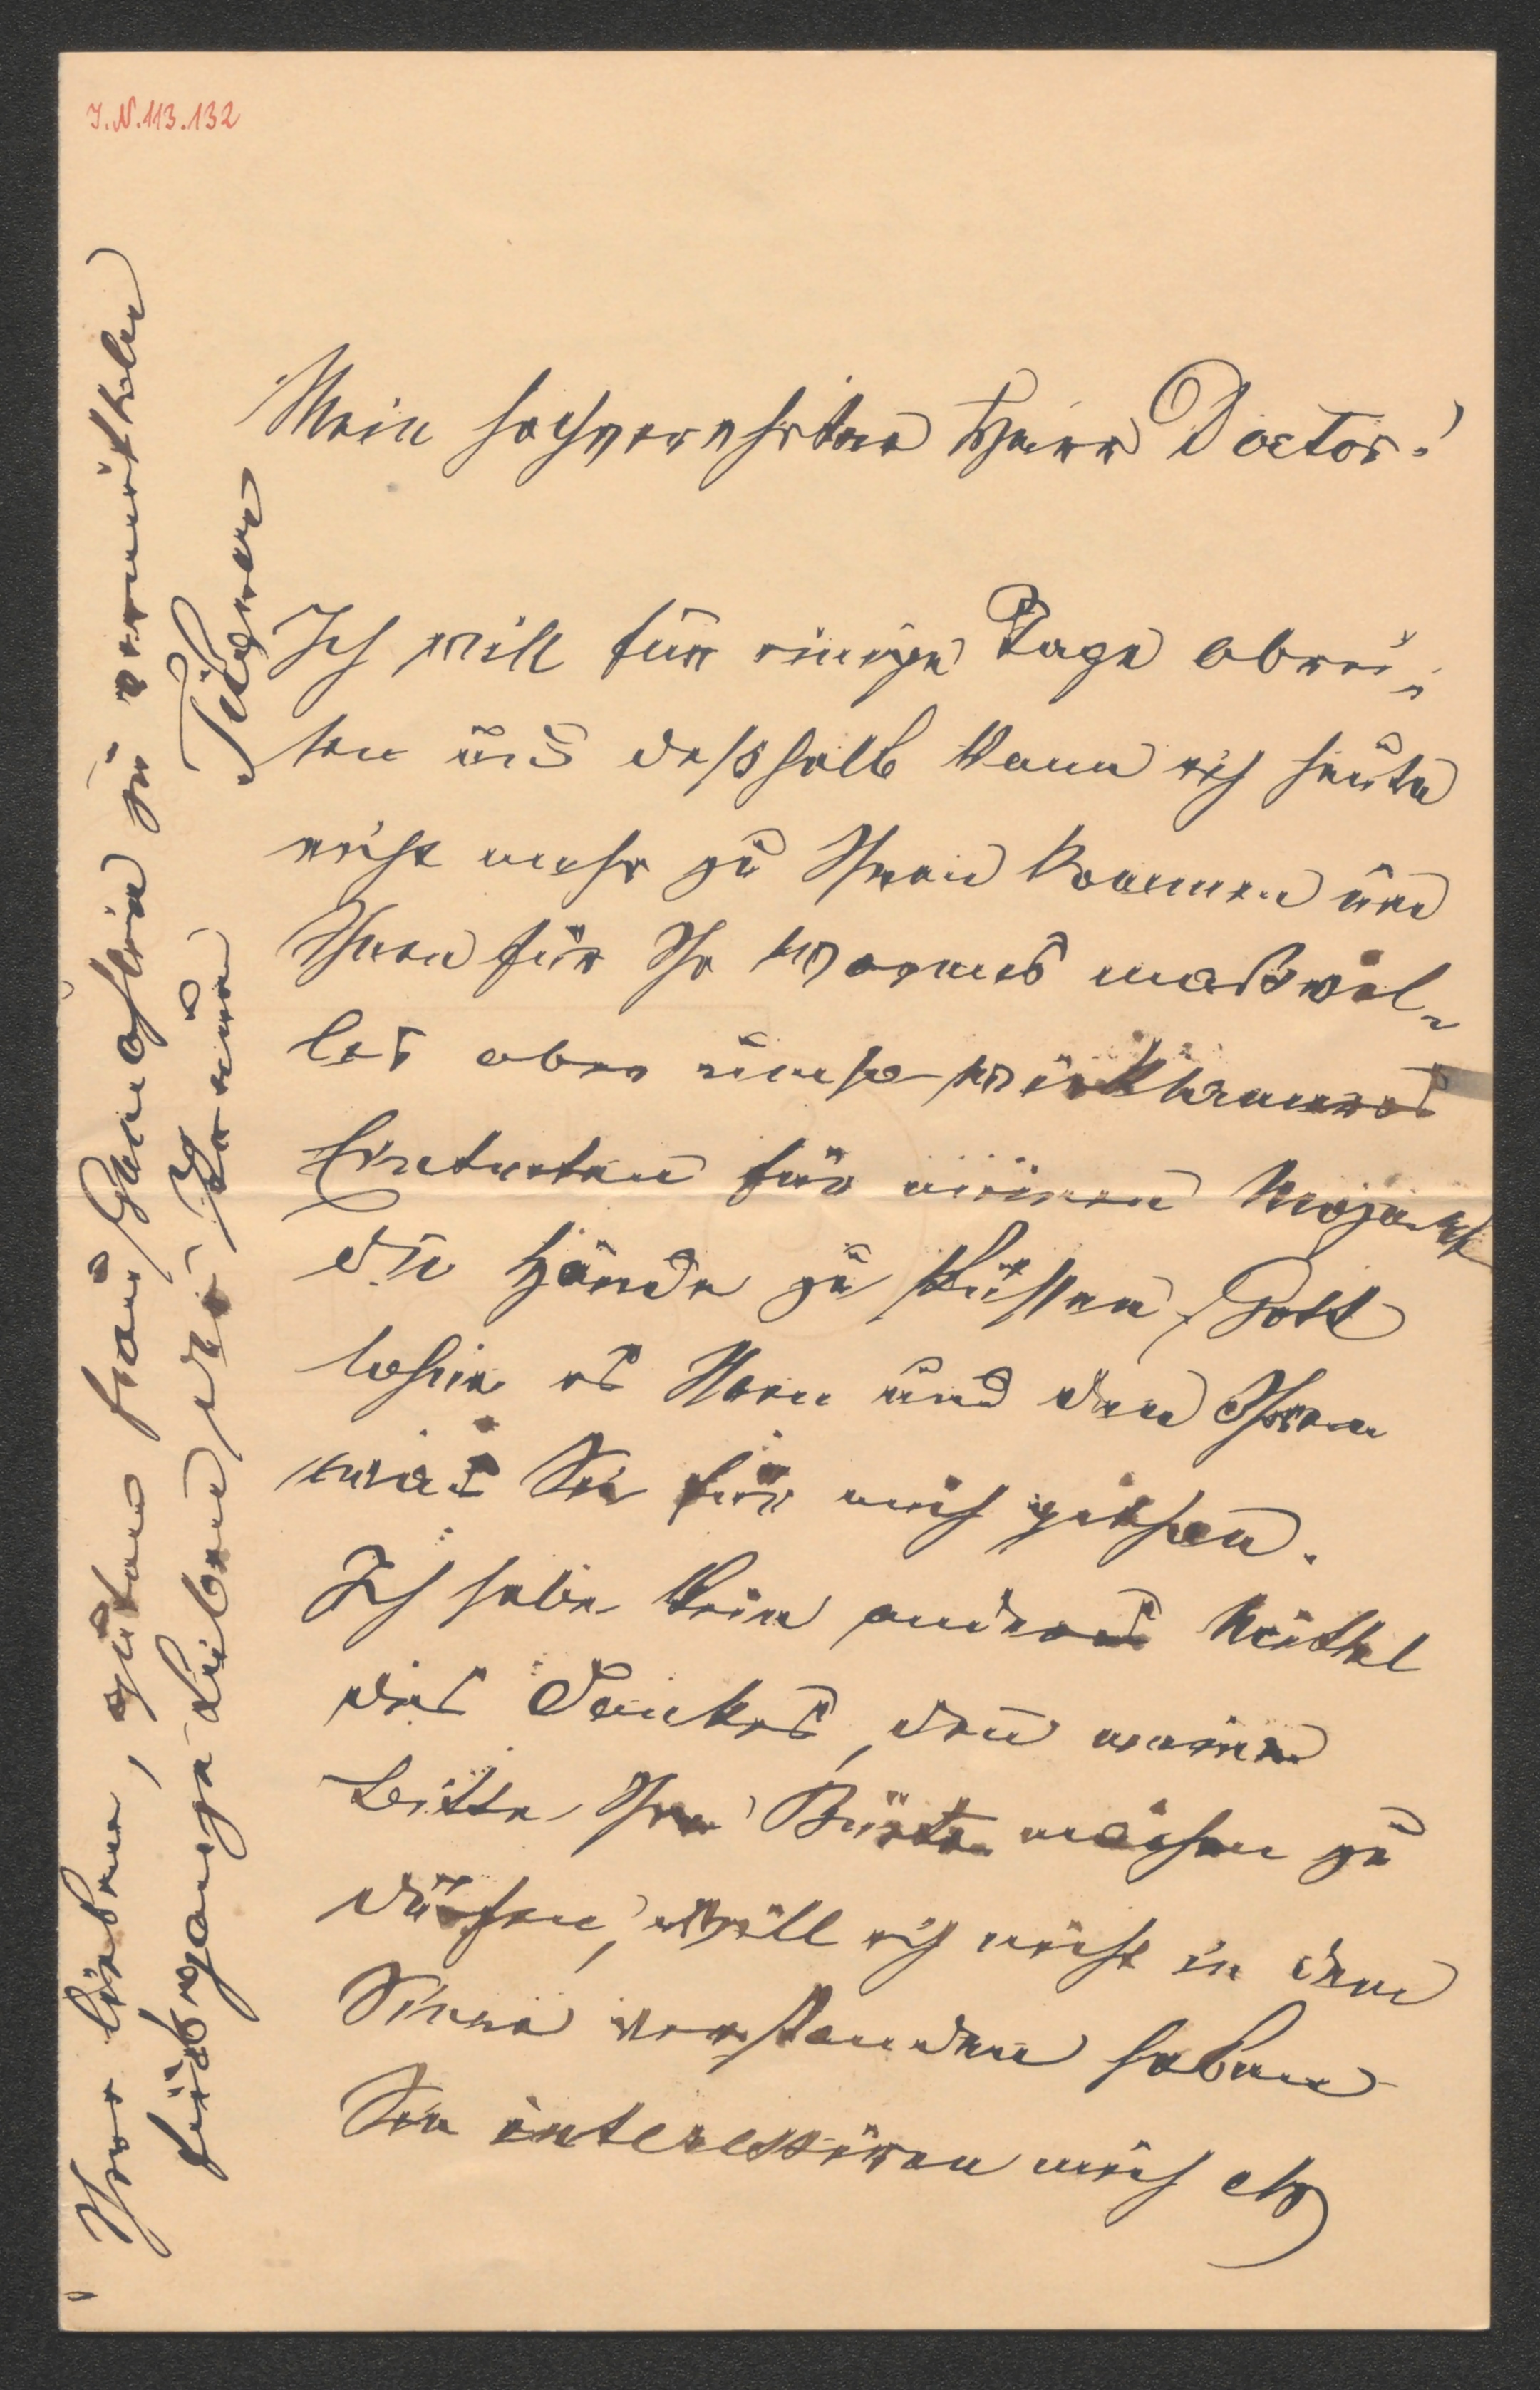 I.N. 113.132
Mein hochverehrter Herr Doctor!
Ich will für einige Tage abrei-
sen und desshalb kann ich heute
nicht mehr zu Ihnen kommen um
Ihnen für Ihr warmes maßvol-
les aber umso wirksameres
Eintreten für meinen Mozart
die Hände zu küssen. Gott
lohne es Ihnen und den Ihren
was Sie für mich gethan.
Ich habe kein anderes Mittel
des Dankes, denn meine
Bitte Ihre Büste machen zu
dürfen, will ich nicht in dem
Sinne verstanden haben
Sie interessiren mich als
Ihrer lieben, guten Frau Gemahlin zu vermitteln
für ganze Leben sei Ihnen
Tilgner